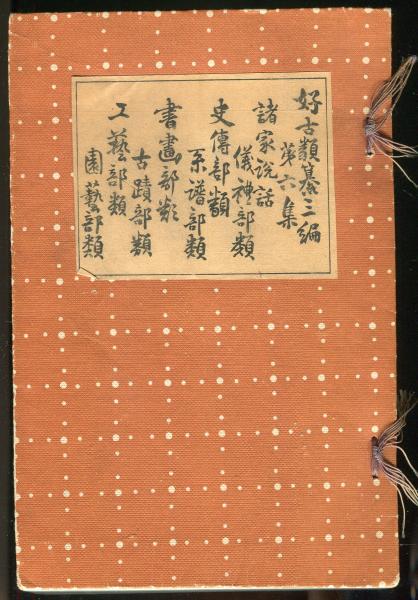 好古類纂三編
第六集
諸家説話
儀禮部類
史傳部類
系譜部類
書畫部類
古蹟部類
工藝部類
園藝部類